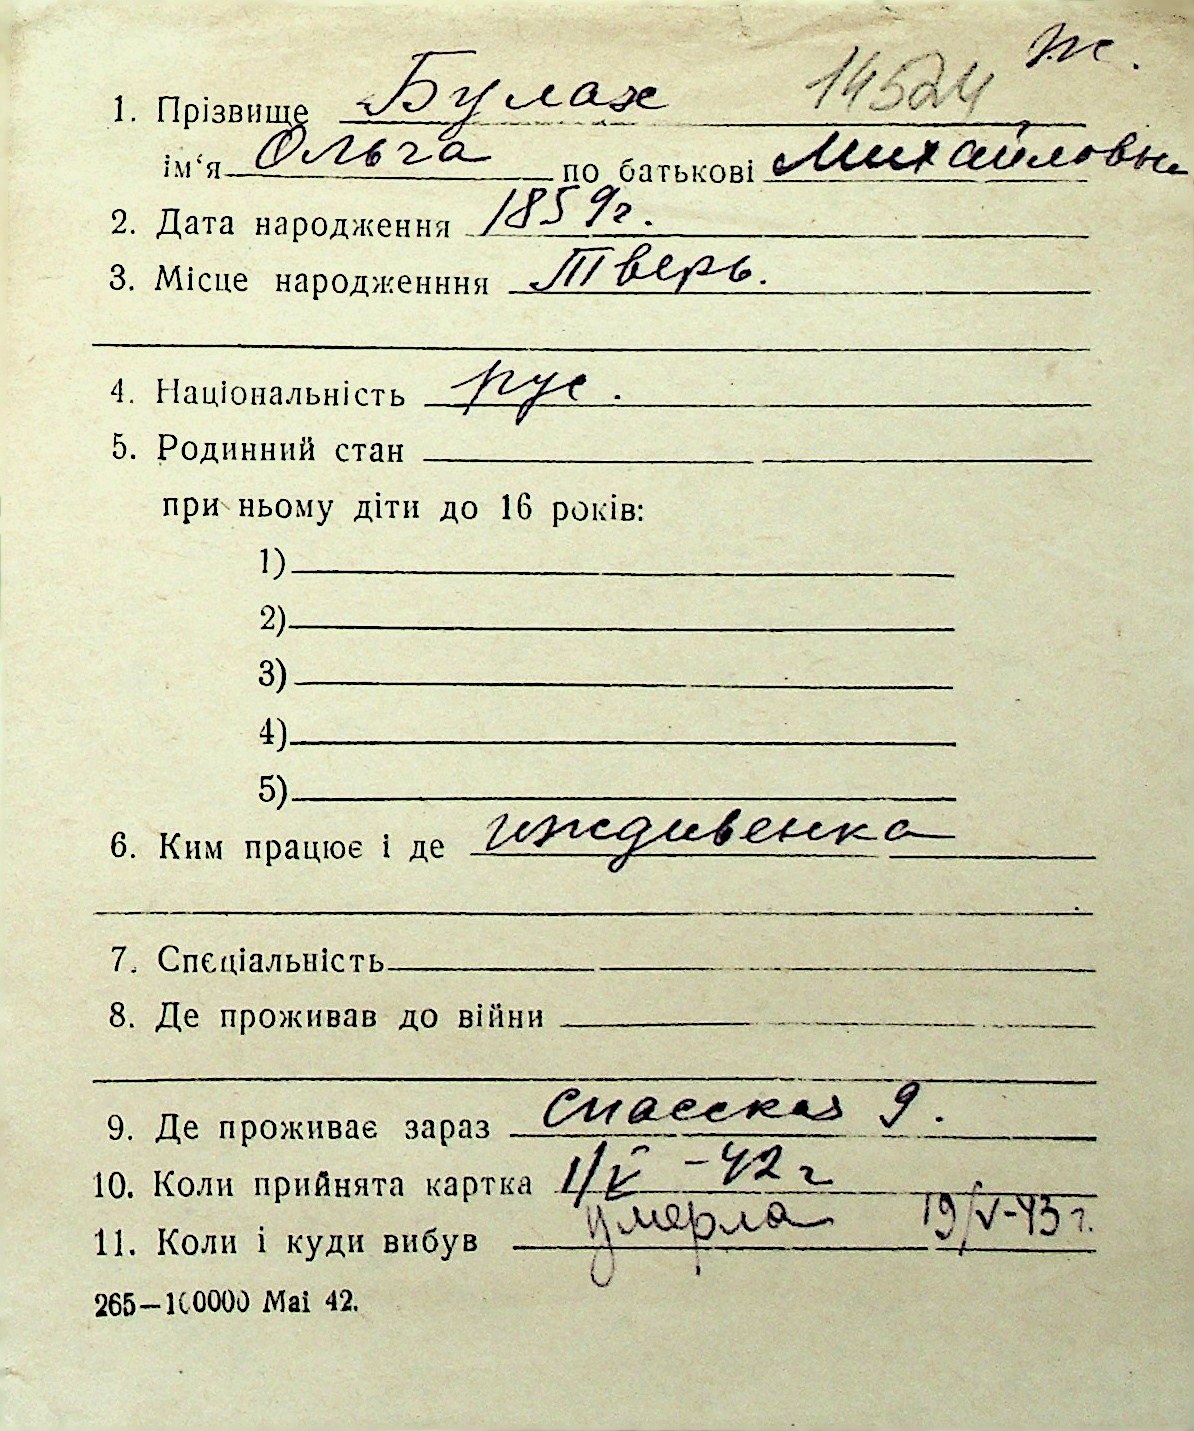 ж.
1. Прізвище Булах 14524
ім‘я Ольга по батькові Михайловн
2. Дата народження 1859г.
3. Місце народженння Тверь.
4. Національність рус.
5. Родинний стан
при ньому діти до 16 років:
1)
2)
3)
4)
5)
6. Ким працює і де иждивенка
7. Спєціальність
8. Де проживав до війни
9. Де проживає зараз Спасская 9.
10. Коли прийнята картка 1/V -42 г
11. Коли і куди вибув умерла 19/V-43 г.
265—100000 Маі 42.